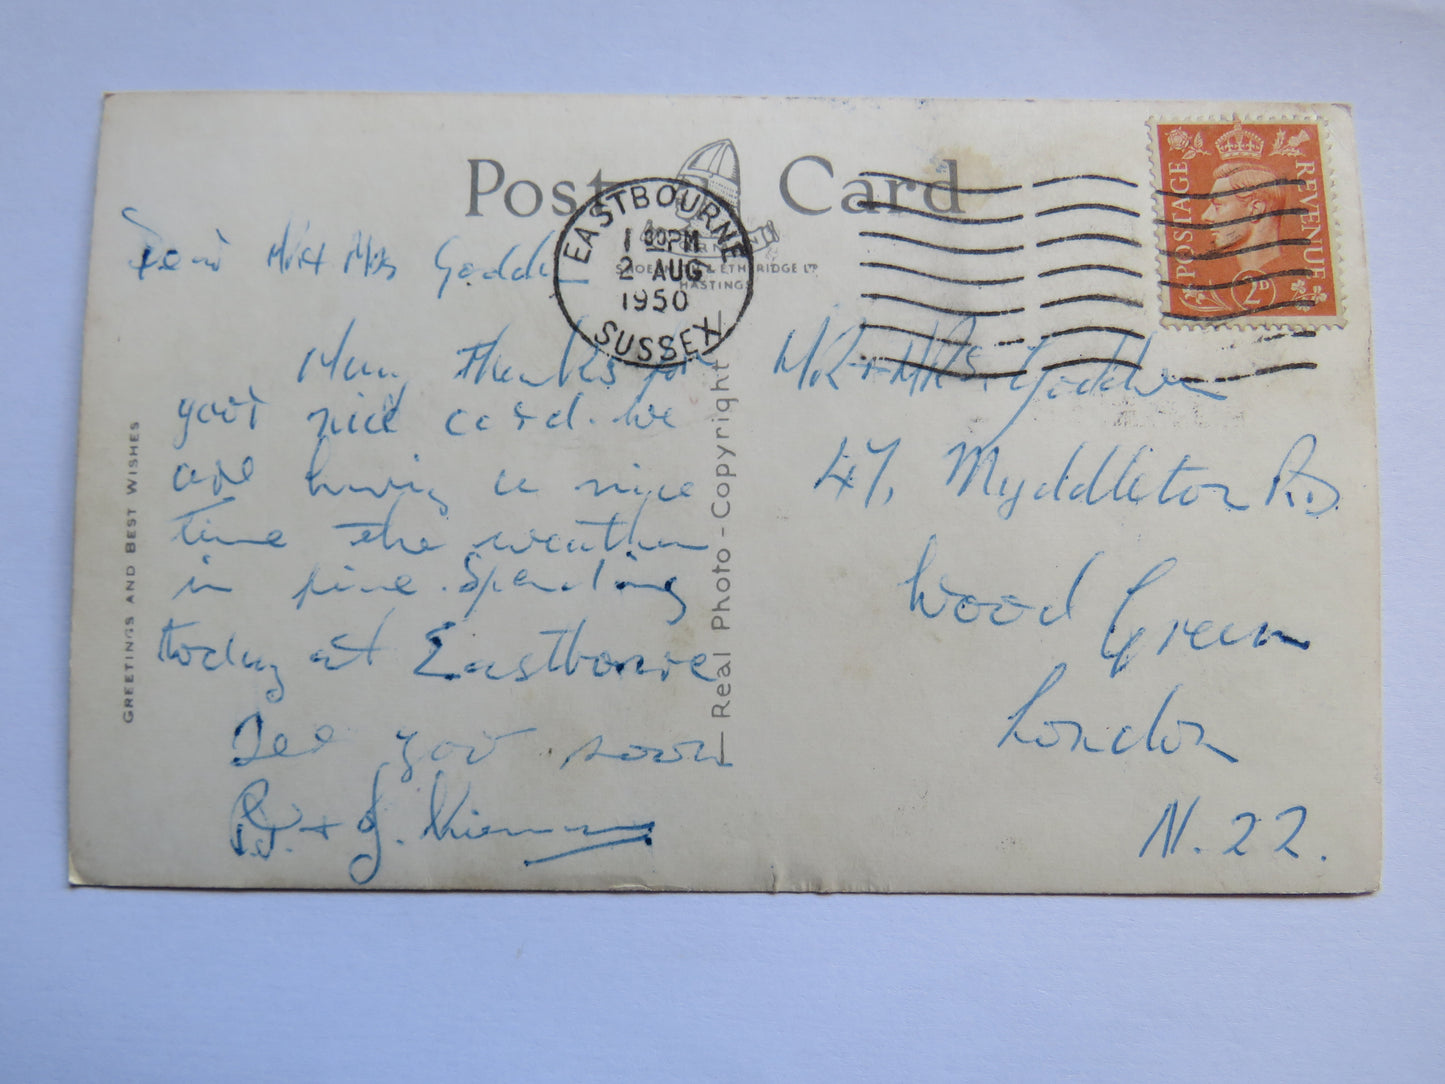 Post Card
NORMAN
SHOESMITH & ETHERIDGE LTD
HASTINGS
EASTBOURNE
1 00PM
2 AUG
1950
SUSSEX
POSTAGE
REVENUE
2D
GREETINGS AND BEST WISHES
Real Photo - Copyright
Dear Mr + Mrs
Many thanks for
your nice card. We
are having a nice
time the weather
is fine. Spending
today at Eastborne
See you soon
+ J.
Mr + MRS.
47, Myddleton Rd
Wood Green
London
N. 22.